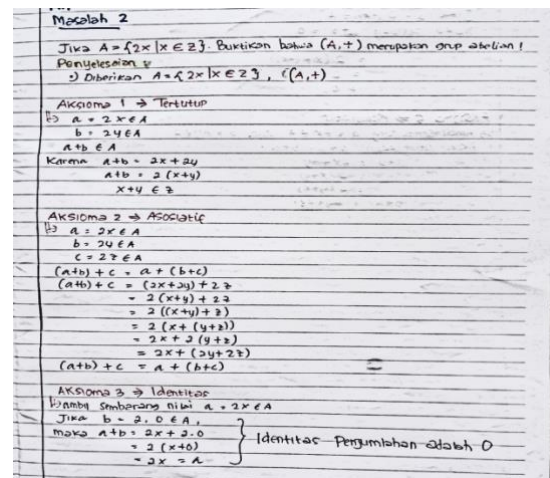 Masalah 2
Jika A = {2x | x ∈ Z}. Buktikan bahwa (A,+) merupakan grup abelian!
Penyelesaian
Diberikan A = {2x | x ∈ Z}, (A,+)
Aksioma 1 → Tertutup
a = 2x ∈ A
b = 2y ∈ A
a+b ∈ A
Karena a+b = 2x + 2y
a+b = 2(x+y)
x+y ∈ Z
Aksioma 2 → Asosiatif
a = 2x ∈ A
b = 2y ∈ A
c = 2z ∈ A
(a+b) + c = a + (b+c)
(a+b) + c = (2x+2y) + 2z
= 2(x+y) + 2z
= 2((x+y) + z)
= 2(x + (y+z))
= 2x + 2(y+z)
= 2x + (2y+2z)
(a+b) + c = a + (b+c)
Aksioma 3 → Identitas
Ambil sembarang nilai a = 2x ∈ A
Jika b = 2.0 ∈ A,
maka a+b = 2x + 2.0
= 2(x+0)
= 2x = a
Identitas Penjumlahan adalah 0